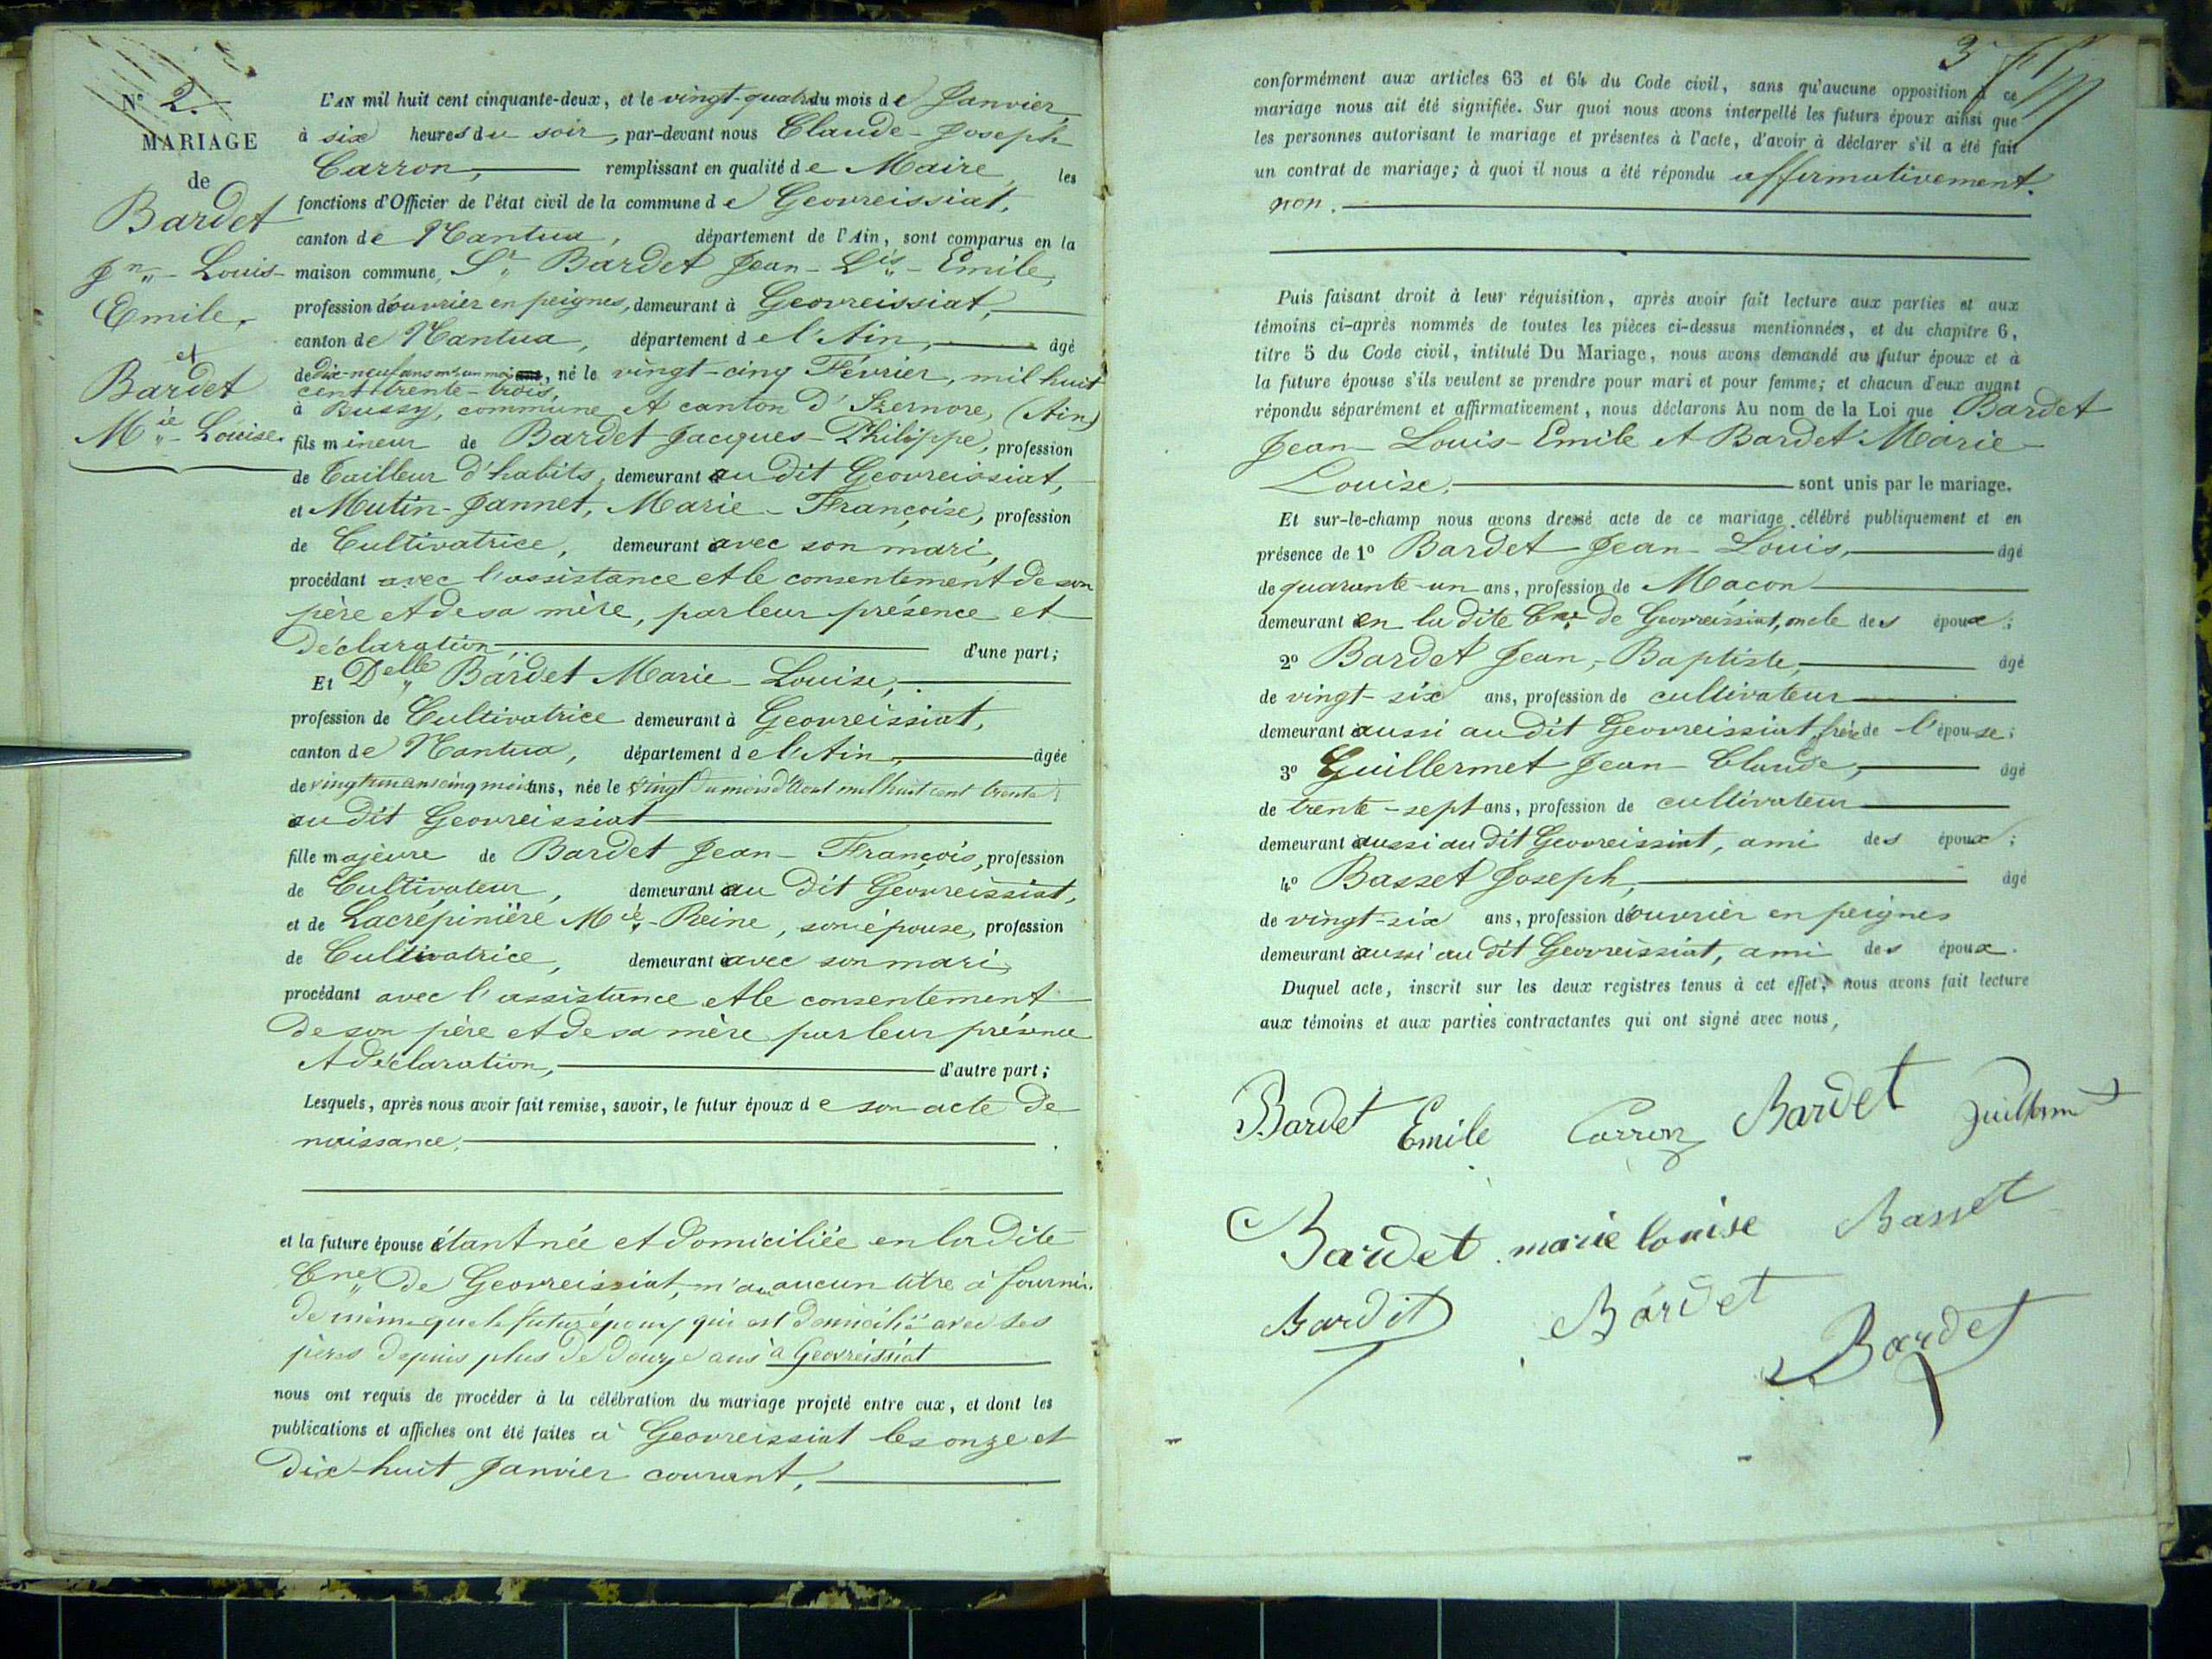 N° 2.
MARIAGE
de
Bardet
Jn. - Louis-
Emile,
et
Bardet
Mie - Louise.
L'AN mil huit cent cinquante-deux, et le vingt-quatre du mois de Janvier,
à six heures du soir, par-devant nous Claude-Joseph
Carron, remplissant en qualité de Maire, les
fonctions d'Officier de l'état civil de la commune de Geovreissiat,
canton de Nantua, département de l'Ain, sont comparus en la
maison commune, Sr. Bardet Jean-Lis.-Emile,
profession d'ouvrier en peignes, demeurant à Geovreissiat,
canton de Nantua, département de l'Ain, âgé
de Dix-neuf ans, né le vingt-cinq Février, mil huit
cent trente-trois,
à Bussy, commune et canton d'Izernore, (Ain)
fils mineur de Bardet Jacques-Philippe, profession
de Tailleur d'habits, demeurant au dit Geovreissiat,
et Mutin-Jannet, Marie-Françoise, profession
de Cultivatrice, demeurant avec son mari,
procédant avec l'assistance et le consentement de son
père et de sa mère, par leur présence et
déclaration, d'une part;
Et Delle Bardet Marie-Louise,
profession de Cultivatrice demeurant à Geovreissiat,
canton de Nantua, département de l'Ain, âgée
de vingt un ans cinq mois ans, née le vingt du mois d'Août mil huit cent trente,
au dit Geovreissiat
fille majeure de Bardet Jean-François, profession
de Cultivateur, demeurant au dit Geovreissiat,
et de Lacrépinière Mie-Reine, son épouse, profession
de Cultivatrice, demeurant avec son mari,
procédant avec l'assistance et le consentement
de son père et de sa mère par leur présence
et déclaration, d'autre part;
Lesquels, après nous avoir fait remise, savoir, le futur époux de son acte de
naissance.
et la future épouse étant née et domiciliée en la dite
Cne de Geovreissiat, n'a aucun titre à fournir.
de même que le futur époux qui est domicilié avec ses
pères depuis plus de douze ans à Geovreissiat
nous ont requis de procéder à la célébration du mariage projeté entre eux, et dont les
publications et affiches ont été faites à Geovreissiat les onze et
dix-huit Janvier courant,
3
conformément aux articles 63 et 64 du Code civil, sans qu'aucune opposition à ce
mariage nous ait été signifiée. Sur quoi nous avons interpellé les futurs époux ainsi que
les personnes autorisant le mariage et présentes à l'acte, d'avoir à déclarer s'il a été fait
un contrat de mariage; à quoi il nous a été répondu affirmativement.
non.
Puis faisant droit à leur réquisition, après avoir fait lecture aux parties et aux
témoins ci-après nommés de toutes les pièces ci-dessus mentionnées, et du chapitre 6,
titre 5 du Code civil, intitulé Du Mariage, nous avons demandé au futur époux et à
la future épouse s'ils veulent se prendre pour mari et pour femme; et chacun d'eux ayant
répondu séparément et affirmativement, nous déclarons Au nom de la Loi que Bardet
Jean-Louis-Emile et Bardet Marie-
Louise, sont unis par le mariage.
Et sur-le-champ nous avons dressé acte de ce mariage célébré publiquement et en
présence de 1° Bardet Jean-Louis, âgé
de quarante-un ans, profession de Maçon
demeurant en la dite Cne. de Geovreissiat, oncle des époux;
2° Bardet Jean-Baptiste, âgé
de vingt-six ans, profession de cultivateur
demeurant aussi au dit Geovreissiat, frère de l'épouse;
3° Guillermet Jean-Claude, âgé
de trente-sept ans, profession de cultivateur
demeurant aussi au dit Geovreissiat, ami des époux;
4° Basset Joseph, âgé
de vingt-six ans, profession d'ouvrier en peignes
demeurant aussi au dit Geovreissiat, ami des époux.
Duquel acte, inscrit sur les deux registres tenus à cet effet, nous avons fait lecture
aux témoins et aux parties contractantes qui ont signé avec nous,
Bardet Emile Carron Bardet Guillermet
Bardet marie louise Basset
Bardet Bardet
Bardet